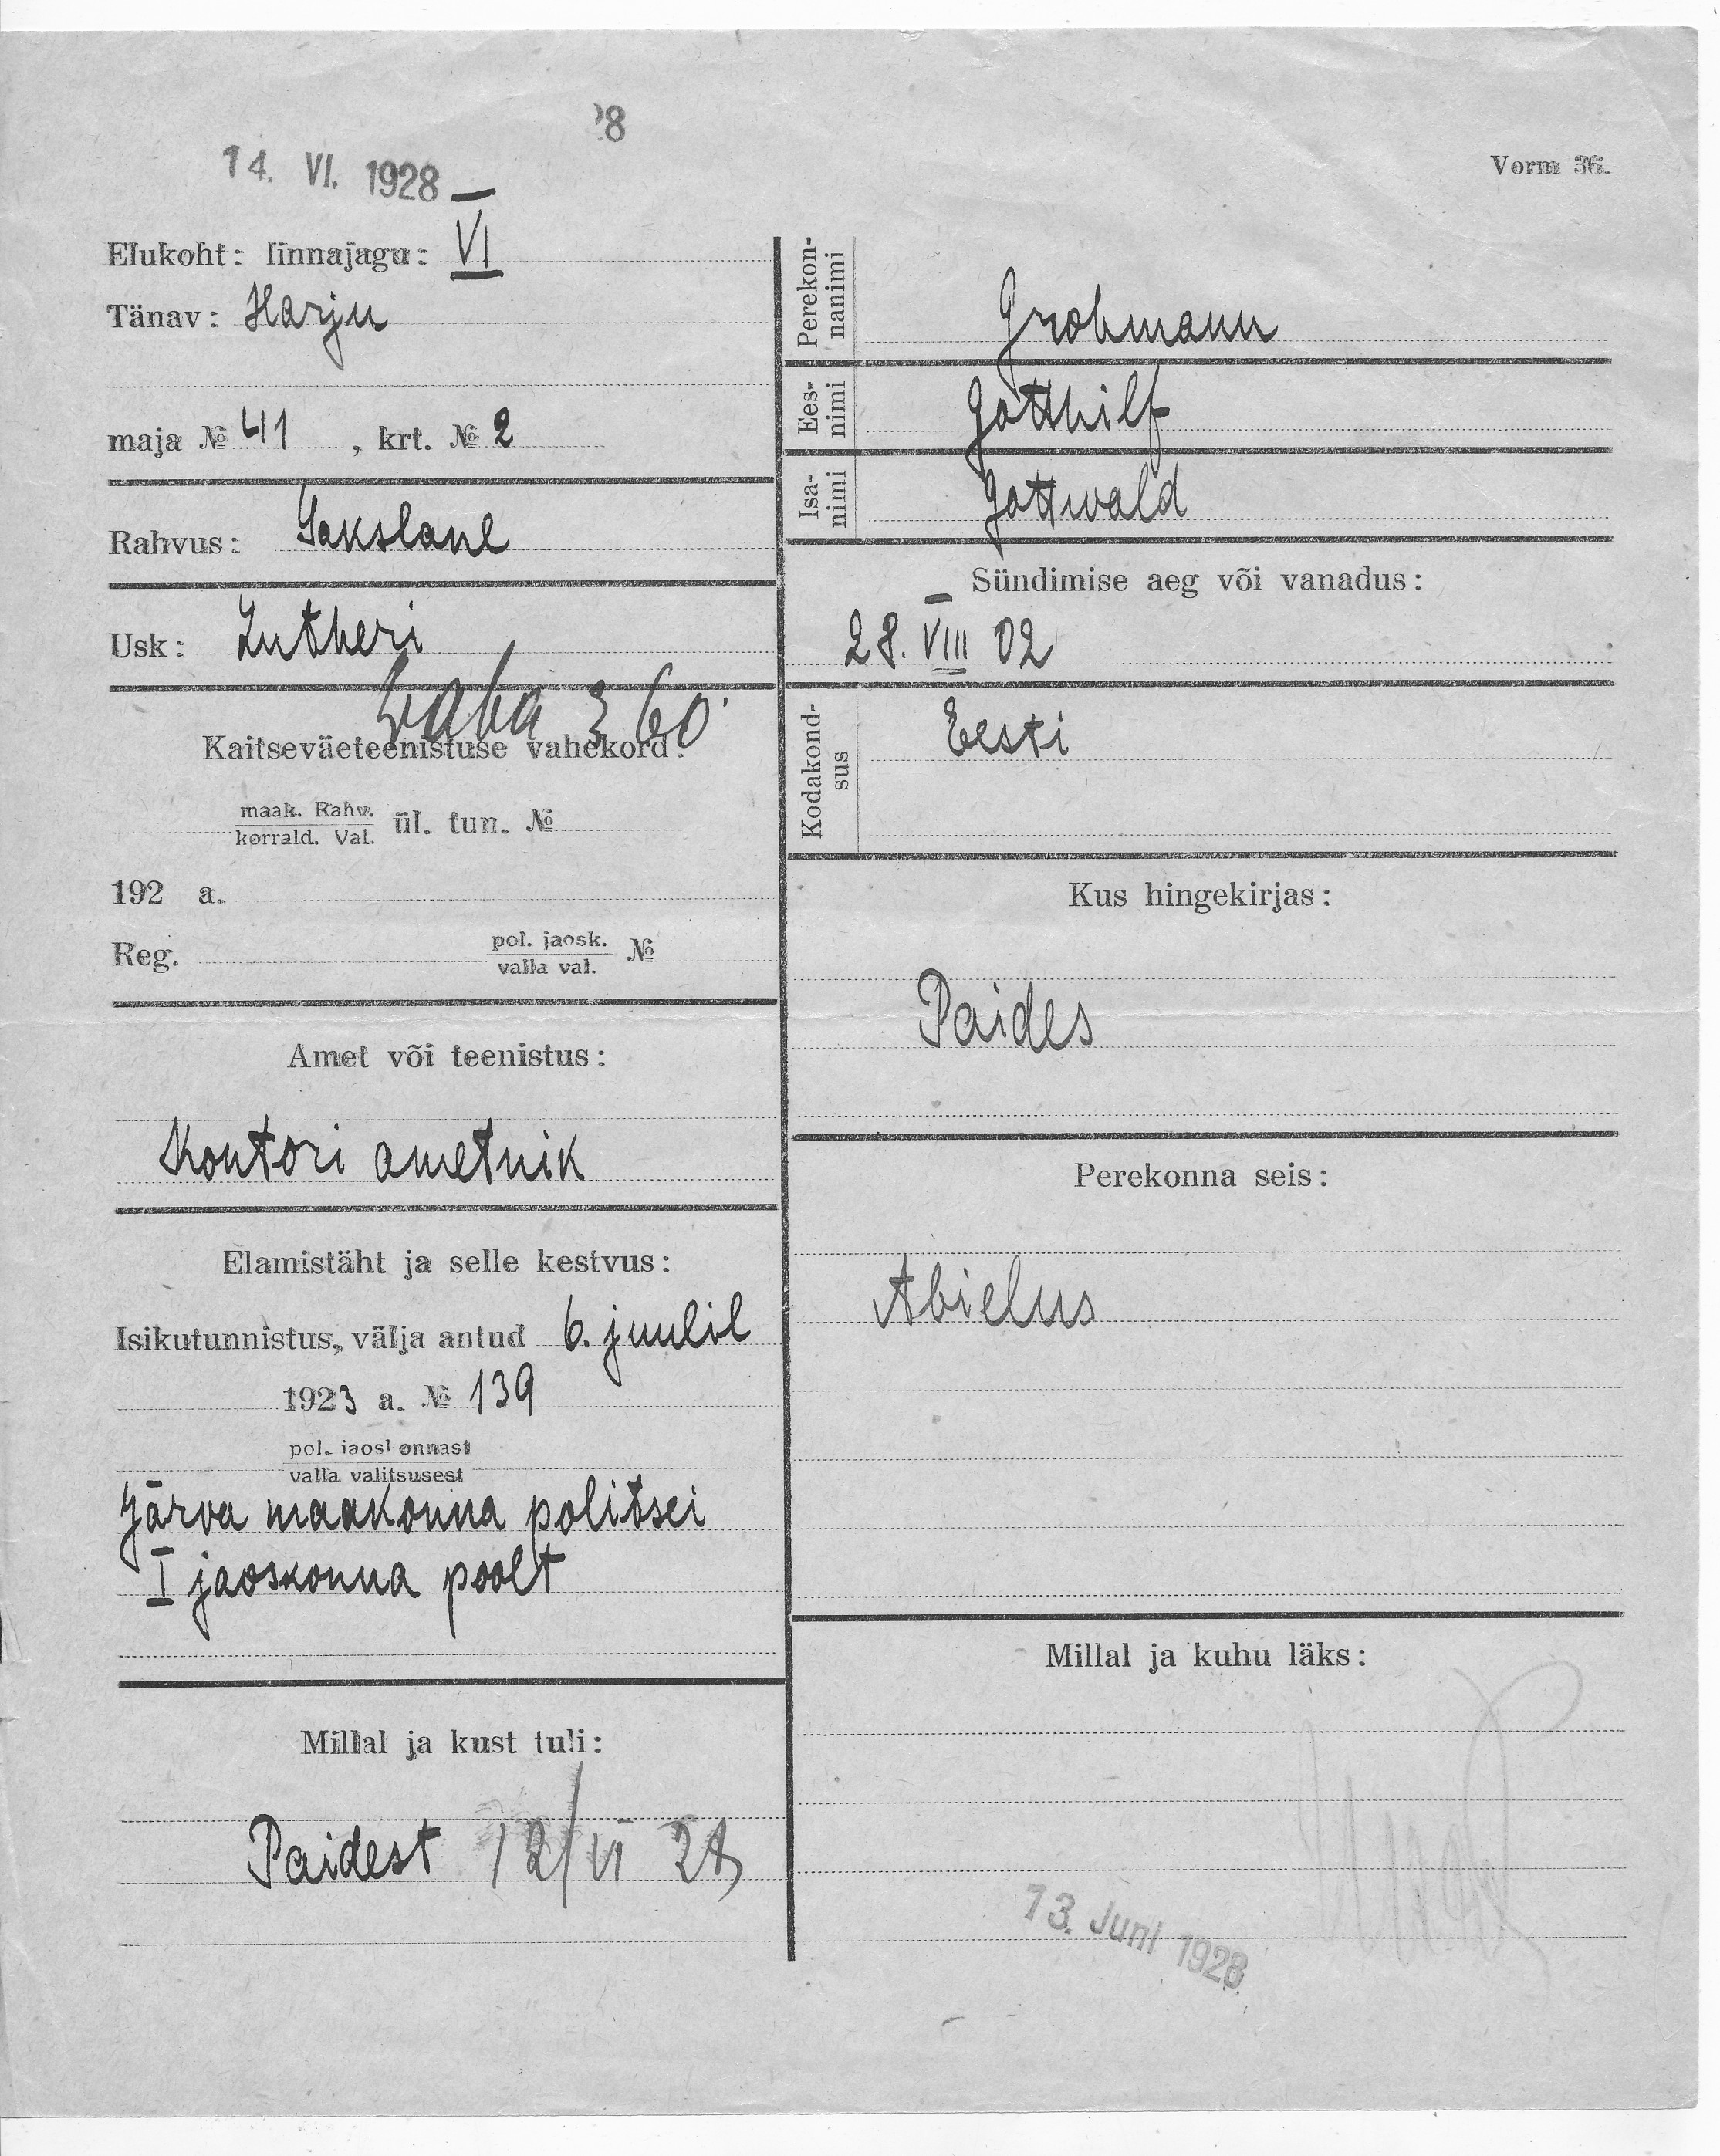 28
14. VI. 1928
Vorm 36.
Elukoht: linnajagu: VI
Tänav: Harju
maja № 41, krt. № 2
Rahvus: Sakslane
Usk: Lutheri
vaba 360
Kaitseväeteenistuse vahekord:
maak. Rahv.
korrald. Val. ül. tun. №
192 a.
Reg. pol. jaosk. №
valla val.
Amet või teenistus:
Kontori ametnik
Elamistäht ja selle kestvus:
Isikutunnistus, välja antud 6. juulil
1923 a. № 139
pol. jaoskonnast
valla valitsusest
Järva maakonna politsei
I jaoskonna poolt
Millal ja kust tuli:
Paidest 12/VI 28
Perekon-
nanimi
Grohmann
Ees-
nimi
Gotthilf
Isa-
nimi
Gottwald
Sündimise aeg või vanadus:
28. VIII 02
Kodakond-
sus
Eesti
Kus hingekirjas:
Paides
Perekonna seis:
Abielus
Millal ja kuhu läks:
13. Juni 1928